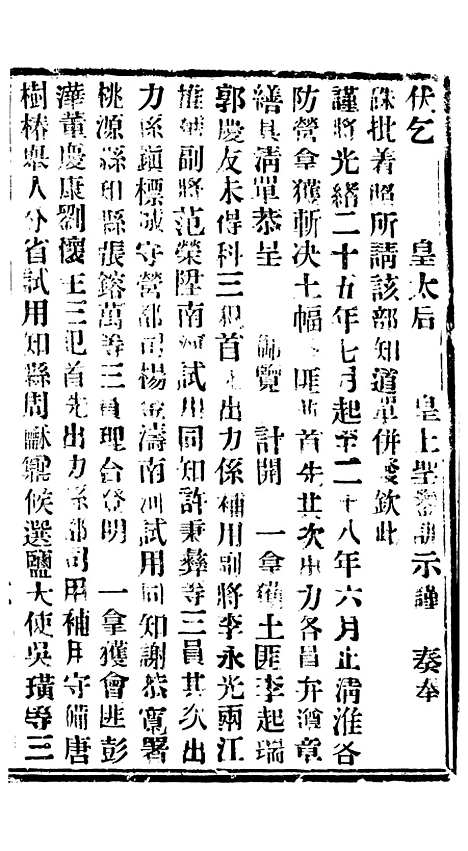 伏乞　皇太后　皇上聖鑒訓示謹　奏奉
硃批着照所請該部知道單併發欽此
謹將光緒二十五年七月起至二十八年六月止清淮各
防營拿獲斬决土幅匪首先其次出力各員弁遵章
繕具清單恭呈　御覽　計開　一拿獲土匪李起瑞
郭慶友未得科三犯首先出力係補用副將李永光兩江
推補副將范榮陞南河試用同知許秉彝等三員其次出
力係鎮標城守營都司楊金濤南河試用同知謝恭寬署
桃源縣知縣張鎔萬等三員理合登明　一拿獲會匪彭
澕董慶康劉懷玉三犯首先出力係都司用補用守備唐
樹椿舉人分省試用知縣周龢鼐候選鹽大使吳璜等三